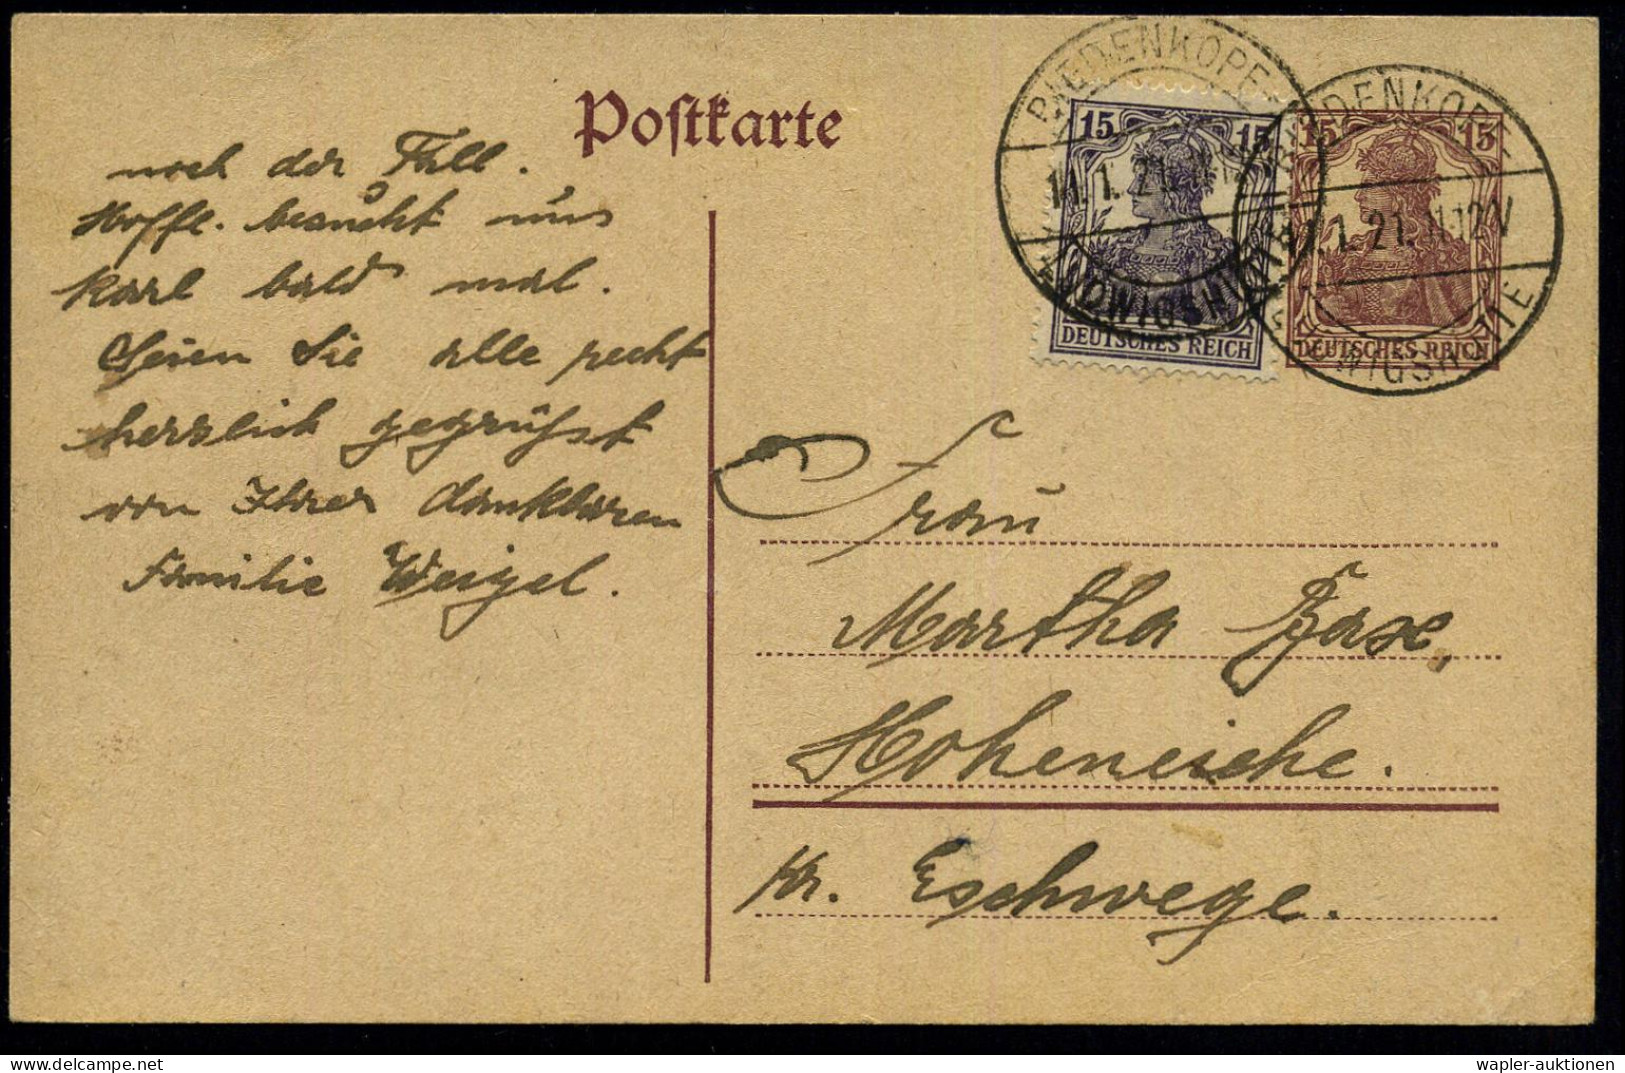 Postkarte
noch der Fall.
Hoffl. besucht uns
Karl bald mal.
Seien Sie alle recht
herzlich gegrüßt
von Ihrer dankbaren
Familie Weigel.
BIEDENKOPF
11.1.21.
LUDWIGSHÜTTE
15 15
DEUTSCHES REICH
BIEDENKOPF
11.1.21. 11-12 V
LUDWIGSHÜTTE
15 15
DEUTSCHES REICH
Frau
Martha
Hoheneiche.
Kr. Eschwege.
wapler-auktionen